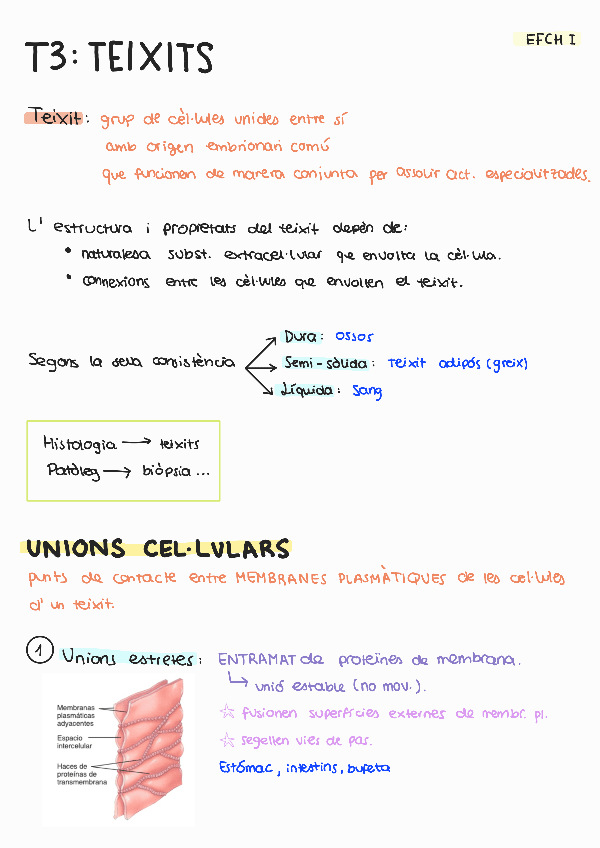 EFCH I
T3: TEIXITS
Teixit: grup de cèl·lules unides entre sí
amb origen embrionari comú
que funcionen de manera conjunta per assolir act. especialitzades.
L'estructura i propietats del teixit depèn de:
• naturalesa subst. extracel·lular que envolta la cèl·lula.
• connexions entre les cèl·lules que envolten el teixit.
Segons la seva consistència
Dura: ossos
Semi-sòlida: Teixit adipós (greix)
Líquida: Sang
Histologia → teixits
Patòleg → biòpsia ...
UNIONS CEL·LULARS
punts de contacte entre MEMBRANES PLASMÀTIQUES de les cel·lules
d'un teixit.
1 Unions estretes: ENTRAMAT de proteïnes de membrana.
↳ unió estable (no mov.).
☆ fusionen superfícies externes de membr. pl.
☆ segellen vies de pas.
Estómac, intestins, bufeta
Membranas
plasmáticas
adyacentes
Espacio
intercelular
Haces de
proteínas de
transmembrana